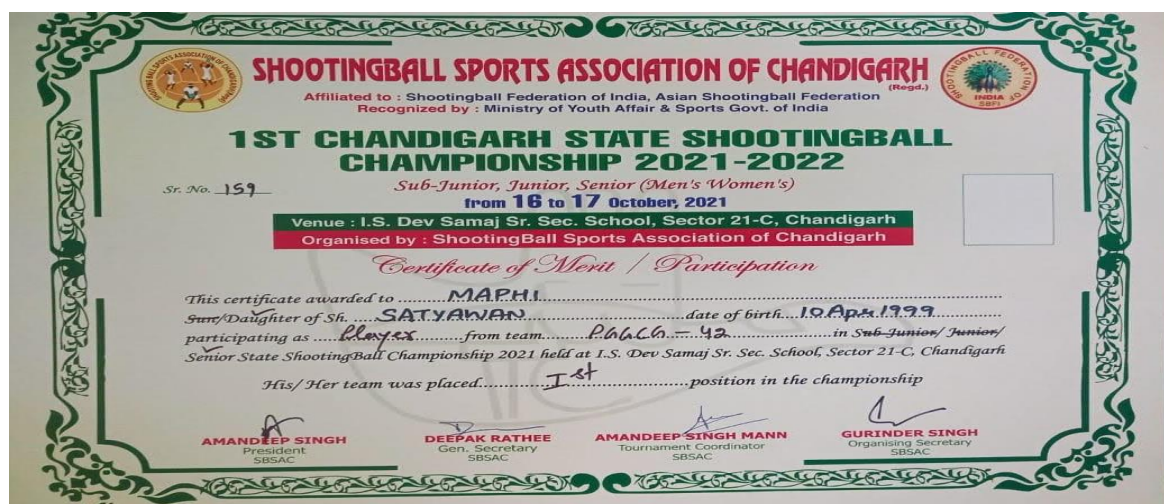 SHOOTINGBALL SPORTS ASSOCIATION OF CHANDIGARH
(Regd.)
Affiliated to : Shootingball Federation of India, Asian Shootingball Federation
Recognized by : Ministry of Youth Affair & Sports Govt. of India
1ST CHANDIGARH STATE SHOOTINGBALL
CHAMPIONSHIP 2021-2022
Sr. No. 159
Sub-Junior, Junior, Senior (Men's Women's)
from 16 to 17 October, 2021
Venue : I.S. Dev Samaj Sr. Sec. School, Sector 21-C, Chandigarh
Organised by : ShootingBall Sports Association of Chandigarh
Certificate of Merit / Participation
This certificate awarded to MAPHI
Son/Daughter of Sh. SATYAWAN date of birth 10 Apr 1999
participating as Player from team P.G.G.C.G. - 42 in Sub-Junior/ Junior/
Senior State ShootingBall Championship 2021 held at I.S. Dev Samaj Sr. Sec. School, Sector 21-C, Chandigarh
His/ Her team was placed Ist position in the championship
AMANDEEP SINGH
President
SBSAC
DEEPAK RATHEE
Gen. Secretary
SBSAC
AMANDEEP SINGH MANN
Tournament Coordinator
SBSAC
GURINDER SINGH
Organising Secretary
SBSAC
SHOOTING BALL SPORTS ASSOCIATION OF CHANDIGARH
SHOOTINGBALL FEDERATION OF
INDIA
SBFI